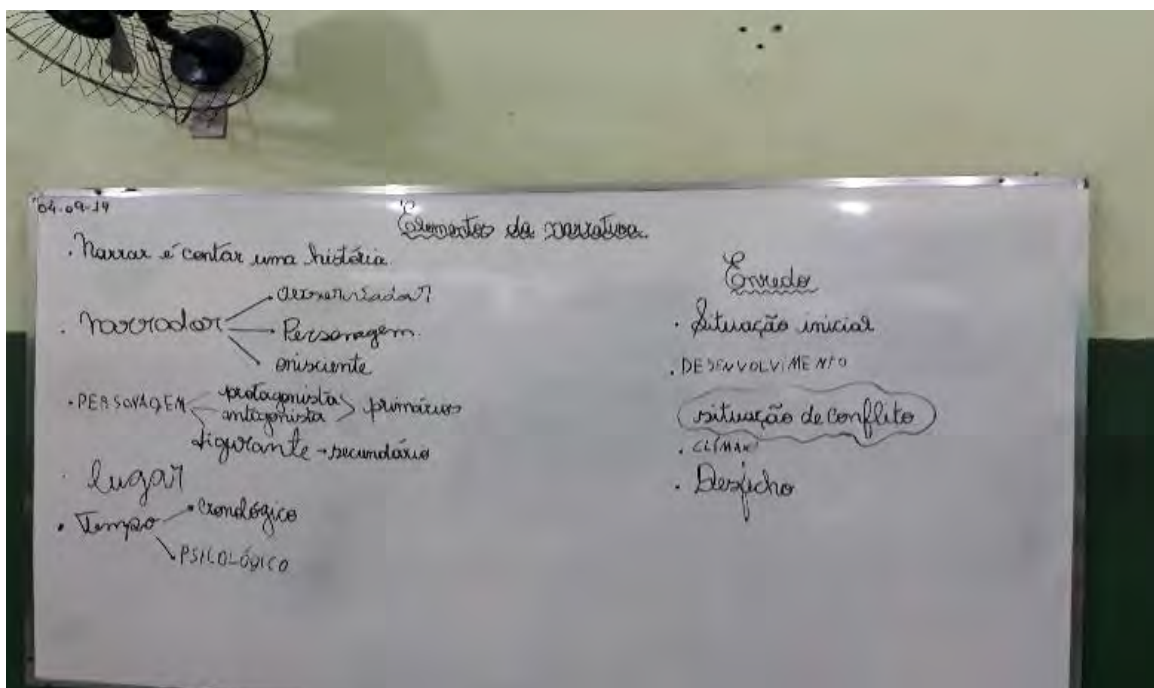 04-09-19
Elementos da narrativa
. Narrar é contar uma história.
. narrador
observador
Personagem.
onisciente
. PERSONAGEM
protagonista
antagonista
primários
figurante → secundário
. lugar
. Tempo
. Cronológico
PSICOLÓGICO
Enredo
. Situação inicial
. DESENVOLVIMENTO
situação de conflito
. CLÍMAX
. Desfecho